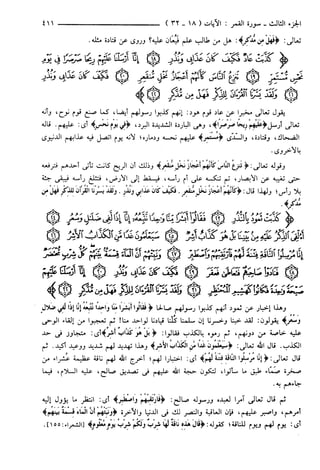 الجزء الثالث ـ سورة القمر : الآيات (١٨ - ٣٢) ٤١١
تعالى: ﴿فَهَلْ مِن مُّدَّكِرٍ﴾: هل من طالب علم فيُعان عليه؟ وروي عن قتادة مثله.
كَذَّبَتْ عَادٌ فَكَيْفَ كَانَ عَذَابِي وَنُذُرِ إِنَّا أَرْسَلْنَا عَلَيْهِمْ رِيحًا صَرْصَرًا فِي يَوْمِ
نَحْسٍ مُّسْتَمِرٍّ تَنزِعُ النَّاسَ كَأَنَّهُمْ أَعْجَازُ نَخْلٍ مُّنقَعِرٍ فَكَيْفَ كَانَ عَذَابِي
وَنُذُرِ وَلَقَدْ يَسَّرْنَا الْقُرْآنَ لِلذِّكْرِ فَهَلْ مِن مُّدَّكِرٍ
يقول تعالى مخبرا عن عاد قوم هود: إنهم كذبوا رسولهم أيضا، كما صنع قوم نوح، وأنه
تعالى أرسل ﴿عَلَيْهِمْ رِيحًا صَرْصَرًا﴾، وهي الباردة الشديدة البرد، ﴿فِي يَوْمِ نَحْسٍ﴾ أي: عليهم. قاله
الضحاك، وقتادة، والسدي ﴿مُّسْتَمِرٍّ﴾ عليهم نحسه ودماره؛ لأنه يوم اتصل فيه عذابهم الدنيوي
بالأخروي.
وقوله تعالى: ﴿تَنزِعُ النَّاسَ كَأَنَّهُمْ أَعْجَازُ نَخْلٍ مُّنقَعِرٍ﴾ وذلك أن الريح كانت تأتي أحدهم فترفعه
حتى تغيبه عن الأبصار، ثم تنكسه على أم رأسه، فيسقط إلى الأرض، فتثلغ رأسه فيبقى جثة
بلا رأس؛ ولهذا قال: ﴿كَأَنَّهُمْ أَعْجَازُ نَخْلٍ مُّنقَعِرٍ . فَكَيْفَ كَانَ عَذَابِي وَنُذُرِ . وَلَقَدْ يَسَّرْنَا الْقُرْآنَ لِلذِّكْرِ فَهَلْ مِن
مُّدَّكِرٍ﴾.
كَذَّبَتْ ثَمُودُ بِالنُّذُرِ فَقَالُوا أَبَشَرًا مِّنَّا وَاحِدًا نَّتَّبِعُهُ إِنَّا إِذًا
لَّفِي ضَلَالٍ وَسُعُرٍ أَأُلْقِيَ الذِّكْرُ عَلَيْهِ مِن بَيْنِنَا بَلْ هُوَ كَذَّابٌ أَشِرٌ سَيَعْلَمُونَ غَدًا مَّنِ الْكَذَّابُ
الْأَشِرُ إِنَّا مُرْسِلُو النَّاقَةِ فِتْنَةً لَّهُمْ فَارْتَقِبْهُمْ وَاصْطَبِرْ وَنَبِّئْهُمْ أَنَّ الْمَاءَ قِسْمَةٌ بَيْنَهُمْ كُلُّ شِرْبٍ مُّحْتَضَرٌ
فَنَادَوْا صَاحِبَهُمْ فَتَعَاطَى فَعَقَرَ فَكَيْفَ كَانَ عَذَابِي وَنُذُرِ إِنَّا أَرْسَلْنَا عَلَيْهِمْ صَيْحَةً
وَاحِدَةً فَكَانُوا كَهَشِيمِ الْمُحْتَظِرِ وَلَقَدْ يَسَّرْنَا الْقُرْآنَ لِلذِّكْرِ فَهَلْ مِن مُّدَّكِرٍ
وهذا إخبار عن ثمود أنهم كذبوا رسولهم صالحا ﴿فَقَالُوا أَبَشَرًا مِّنَّا وَاحِدًا نَّتَّبِعُهُ إِنَّا إِذًا لَّفِي ضَلَالٍ
وَسُعُرٍ﴾ يقولون: لقد خبنا وخسرنا إن سلمنا كُلُّنا قيادنا لواحد منا! ثم تعجبوا من إلقاء الوحي
عليه خاصة من دونهم، ثم رموه بالكذب فقالوا: ﴿بَلْ هُوَ كَذَّابٌ أَشِرٌ﴾ أي: متجاوز في حد
الكذب. قال الله تعالى: ﴿سَيَعْلَمُونَ غَدًا مَّنِ الْكَذَّابُ الْأَشِرُ﴾ وهذا تهديد لهم شديد ووعيد أكيد. ثم
قال تعالى: ﴿إِنَّا مُرْسِلُو النَّاقَةِ فِتْنَةً لَّهُمْ﴾ أي: اختبارا لهم؛ أخرج الله لهم ناقة عظيمة عُشَراء من
صخرة صمّاء، طبق ما سألوا، لتكون حجة الله عليهم في تصديق صالح، عليه السلام، فيما
جاءهم به.
ثم قال تعالى آمرا لعبده ورسوله صالح: ﴿فَارْتَقِبْهُمْ وَاصْطَبِرْ﴾ أي: انتظر ما يؤول إليه
أمرهم، واصبر عليهم، فإن العاقبة والنصر لك في الدنيا والآخرة ﴿وَنَبِّئْهُمْ أَنَّ الْمَاءَ قِسْمَةٌ بَيْنَهُمْ﴾
أي: يوم لهم ويوم للناقة؛ كقوله: ﴿قَالَ هَذِهِ نَاقَةٌ لَّهَا شِرْبٌ وَلَكُمْ شِرْبُ يَوْمٍ مَّعْلُومٍ﴾ [الشعراء: ١٥٥].